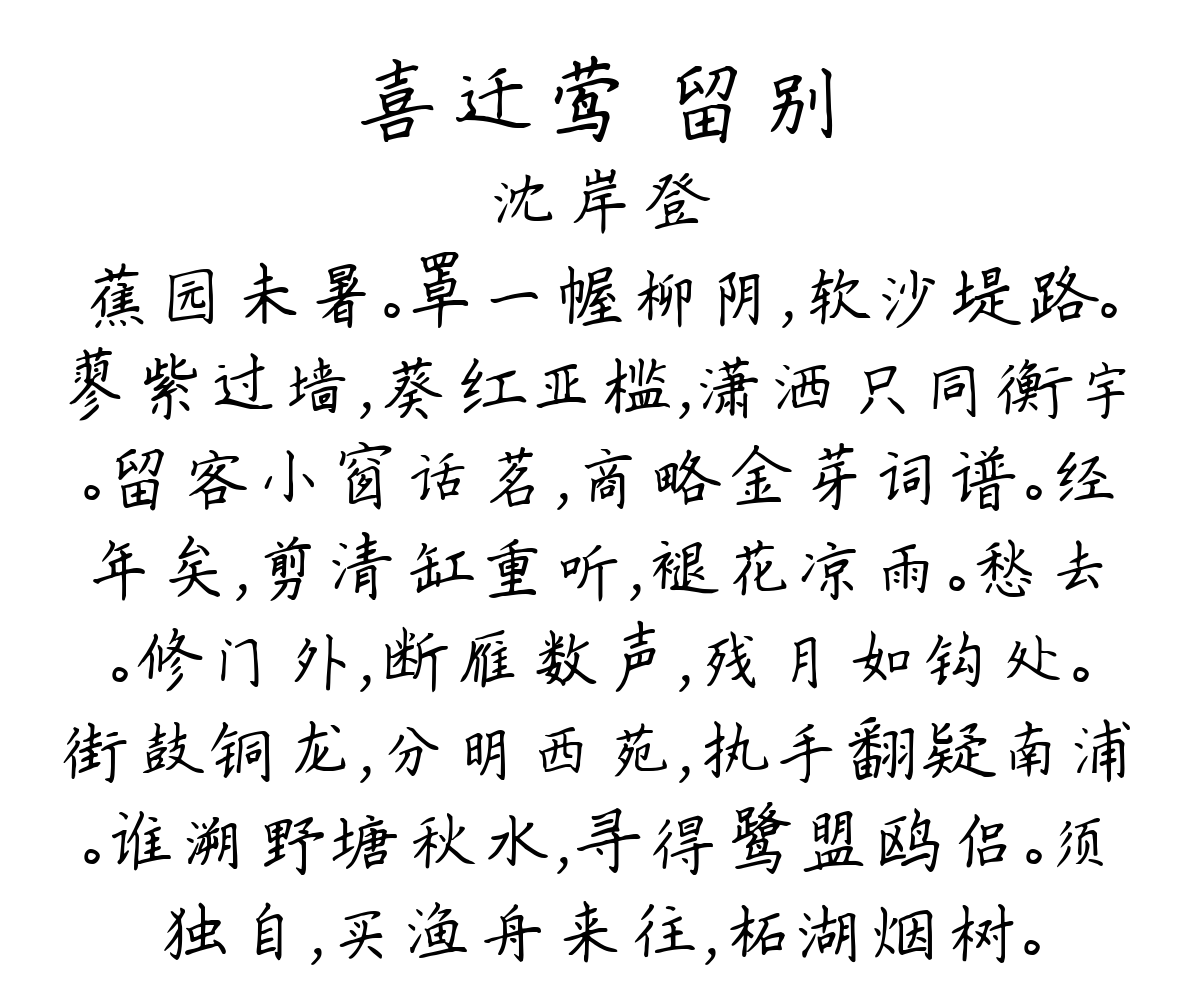 喜迁莺 留别
沈岸登
蕉园未暑。罩一幄柳阴,软沙堤路。
蓼紫过墙,葵红亚槛,潇洒只同衡宇
。留客小窗话茗,商略金芽词谱。经
年矣,剪清缸重听,褪花凉雨。愁去
。修门外,断雁数声,残月如钩处。
街鼓铜龙,分明西苑,执手翻疑南浦
。谁溯野塘秋水,寻得鹭盟鸥侣。须
独自,买渔舟来往,柘湖烟树。